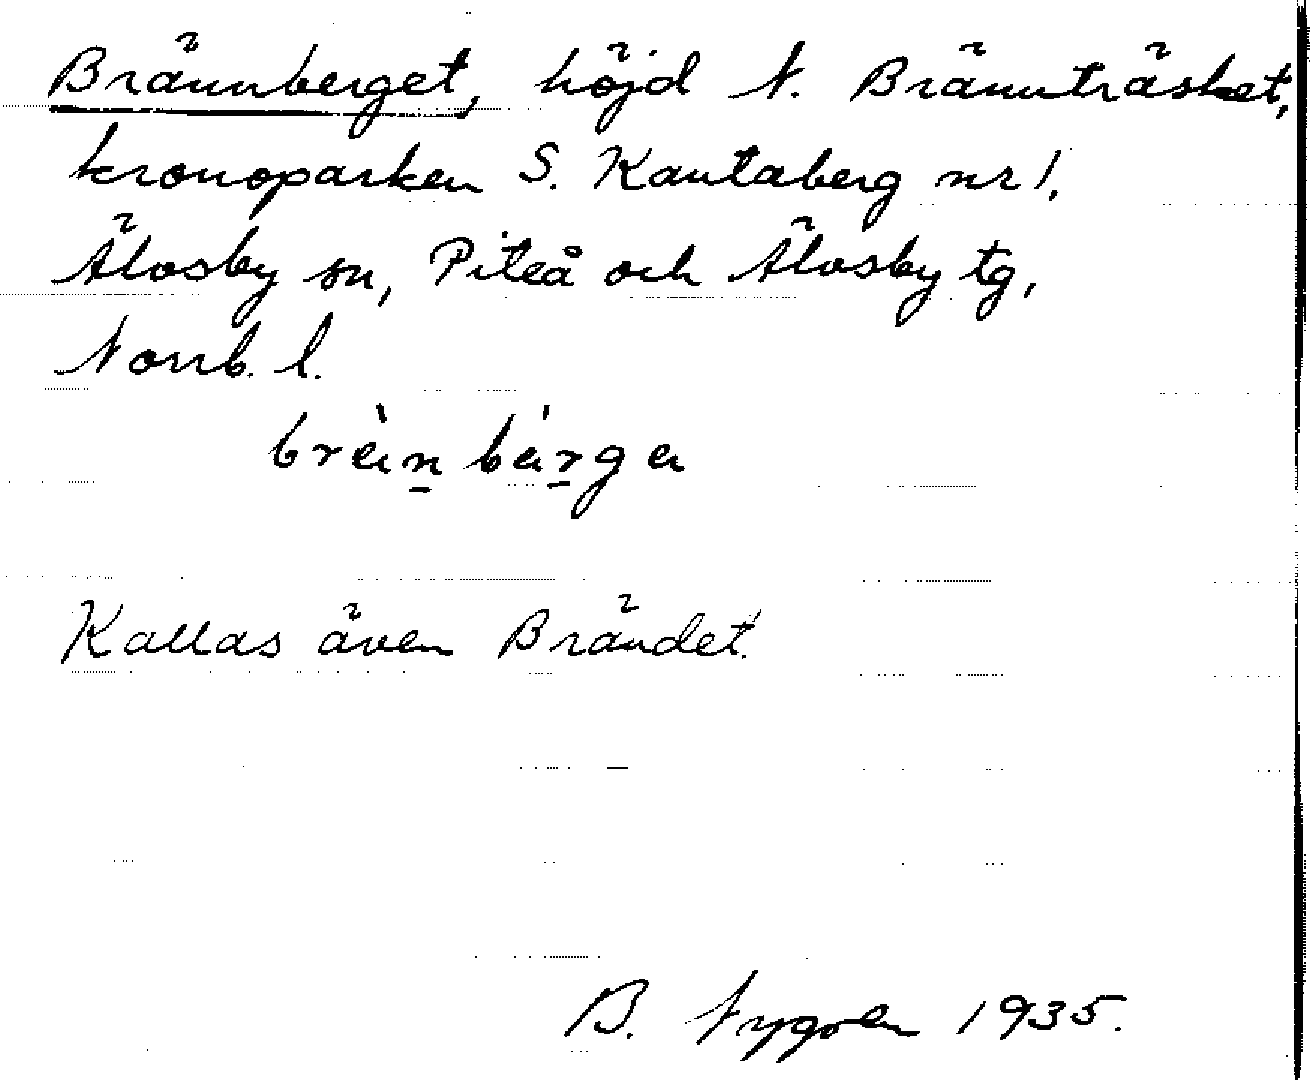 Brännberget, höjd N. Brännträsket,
kronoparken S. Kantaberg nr 1,
Älvsby sn, Piteå och Älvsby tg,
Norrb. l.
brèn bárga
Kallas även Brändet.
B. Nygren 1935.